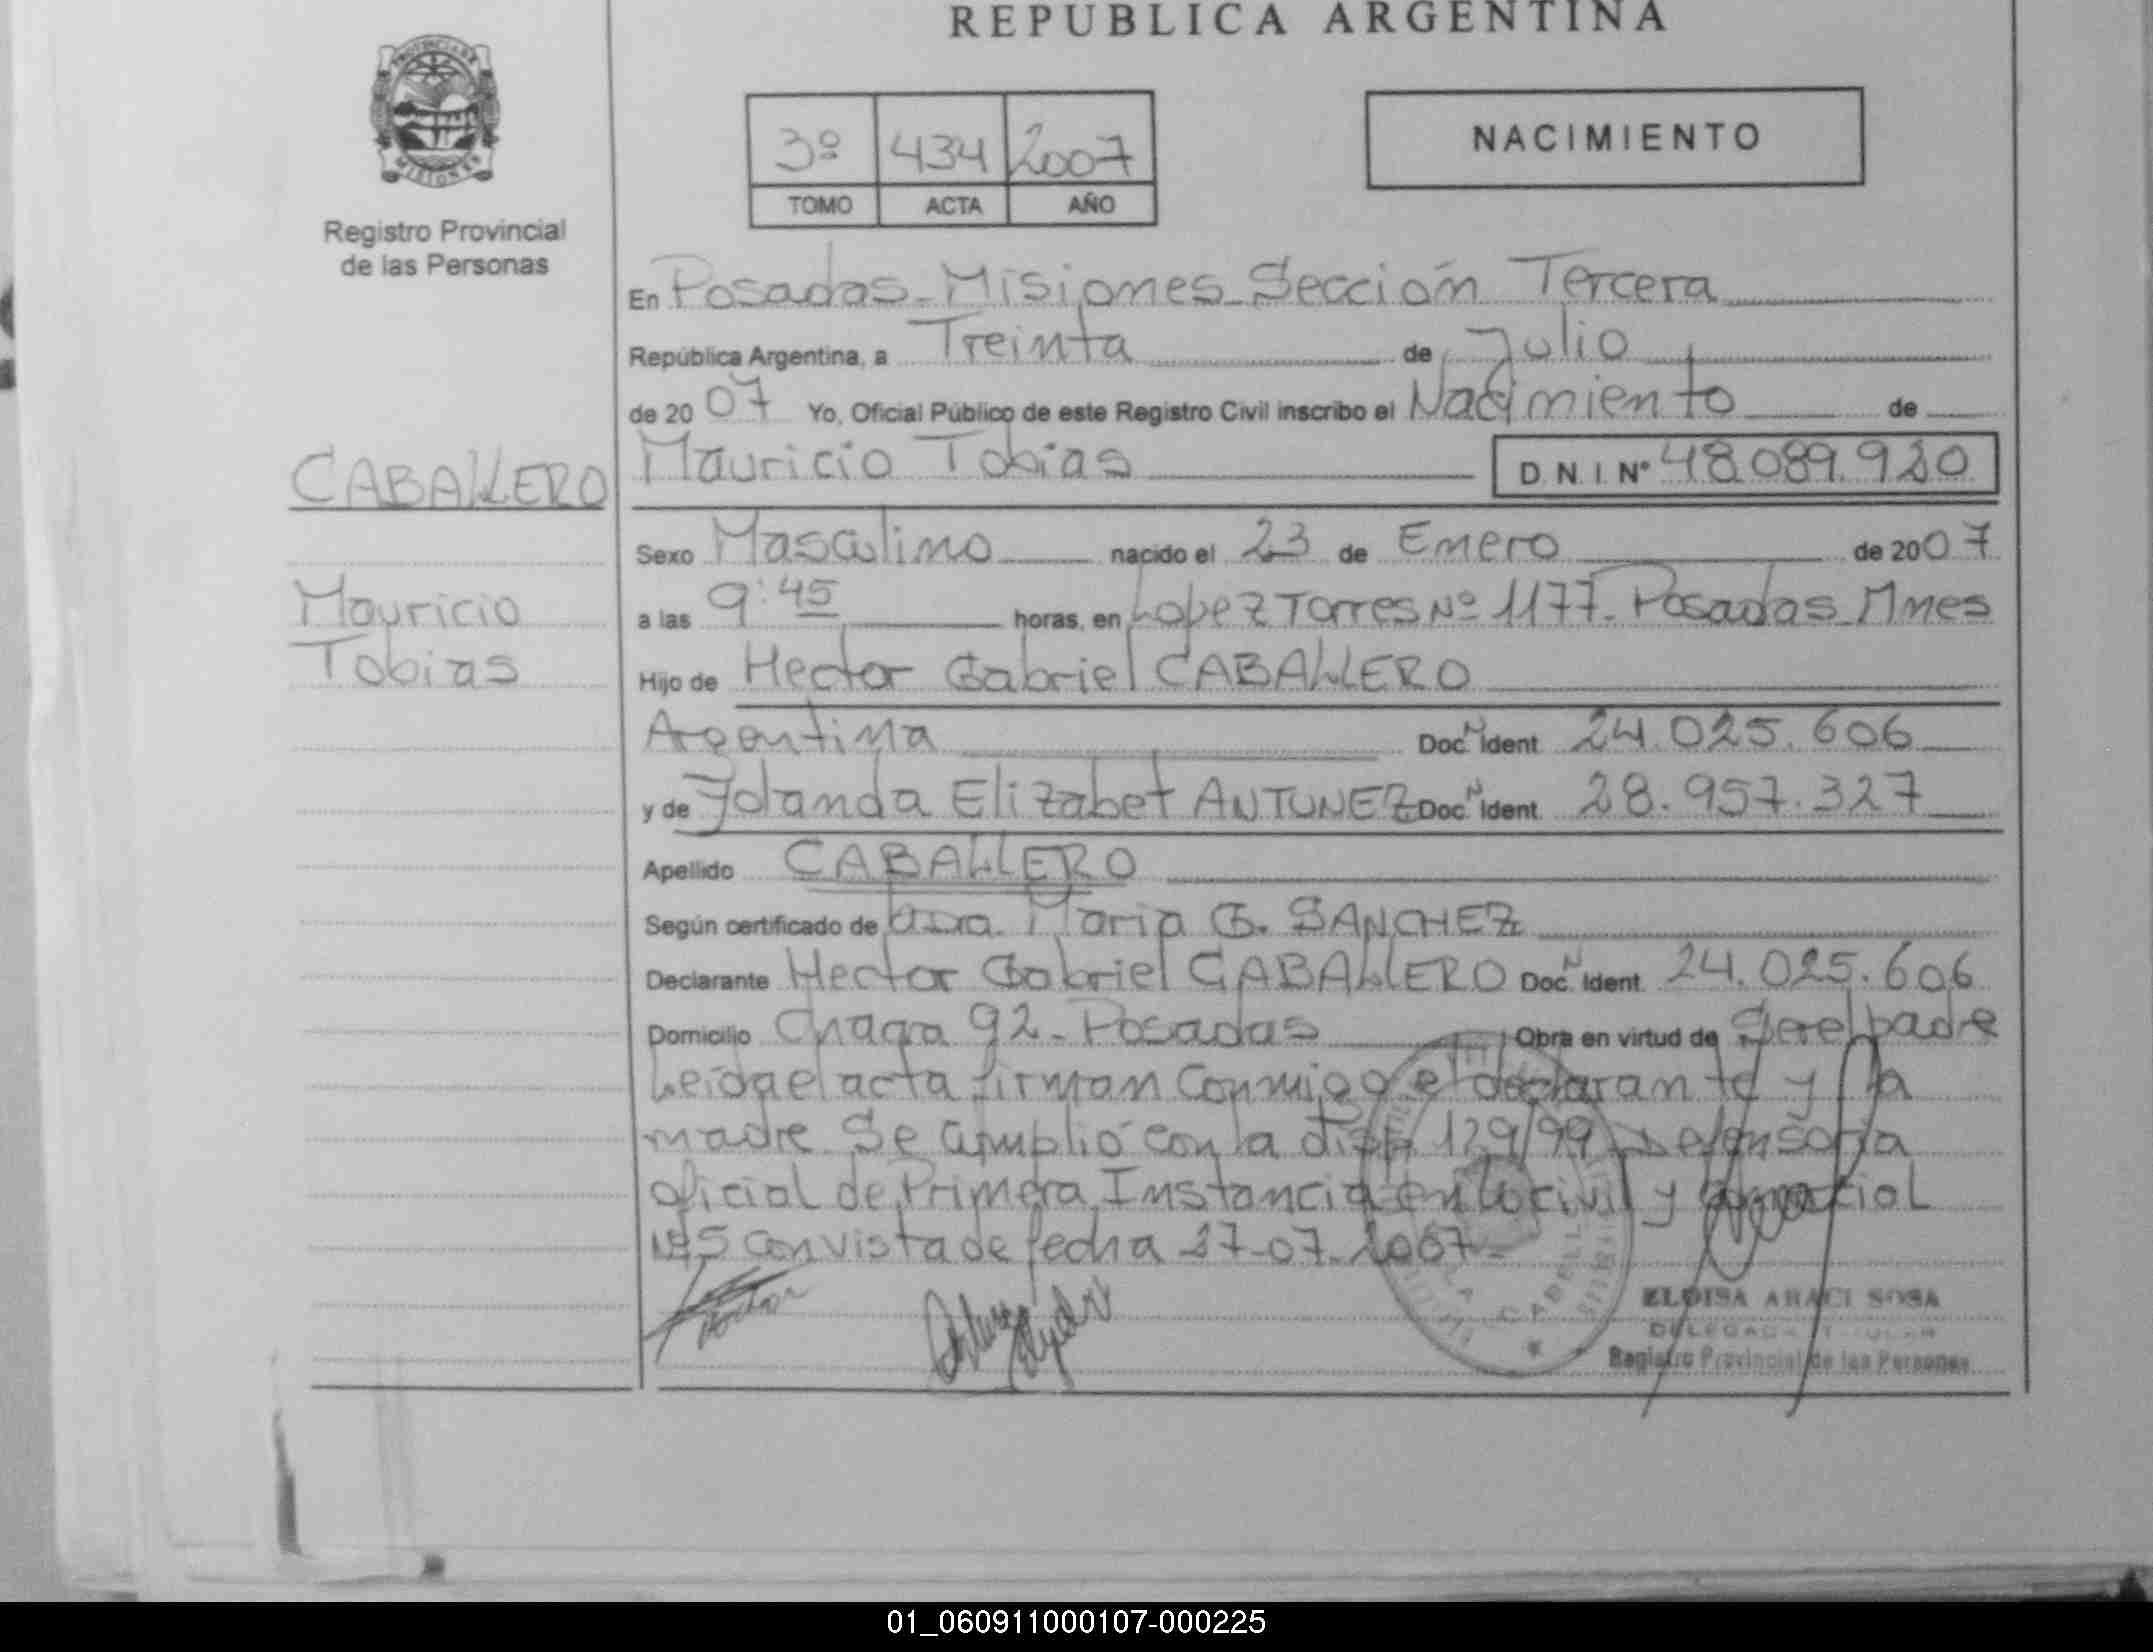 REPUBLICA ARGENTINA
PROVINCIA DE
MISIONES
Registro Provincial
de las Personas
3º 434 2007
TOMO ACTA AÑO
NACIMIENTO
En Posadas - Misiones - Sección Tercera
República Argentina, a Treinta de Julio
de 2007 Yo, Oficial Público de este Registro Civil inscribo el Nacimiento de
CABALLERO Mauricio Tobias D.N.I. Nº 48.089.920
Sexo Masculino nacido el 23 de Enero de 2007
Mauricio
a las 9:45 horas, en Lopez Torres Nº 1177 - Posadas - Mnes
Tobias
Hijo de Hector Gabriel CABALLERO
Argentina Doc. N Ident 24.025.606
y de Yolanda Elizabet ANTUNEZ Doc. N Ident. 28.957.327
Apellido CABALLERO
Según certificado de Dra. Maria G. SANCHEZ
Declarante Hector Gabriel CABALLERO Doc. N Ident. 24.025.606
Domicilio Chacra 92 - Posadas Obra en virtud de Ser el padre
Leida el acta firman conmigo el declarante y la
madre Se amplió con la disp. 129/99 Defensoria
oficial de Primera Instancia en lo civil y comercial
Nº5 con vista de fecha 27-07-2007-
ELOISA ARACI SOSA
DELEGADA TITULAR
Registro Provincial de las Personas
01_060911000107-000225